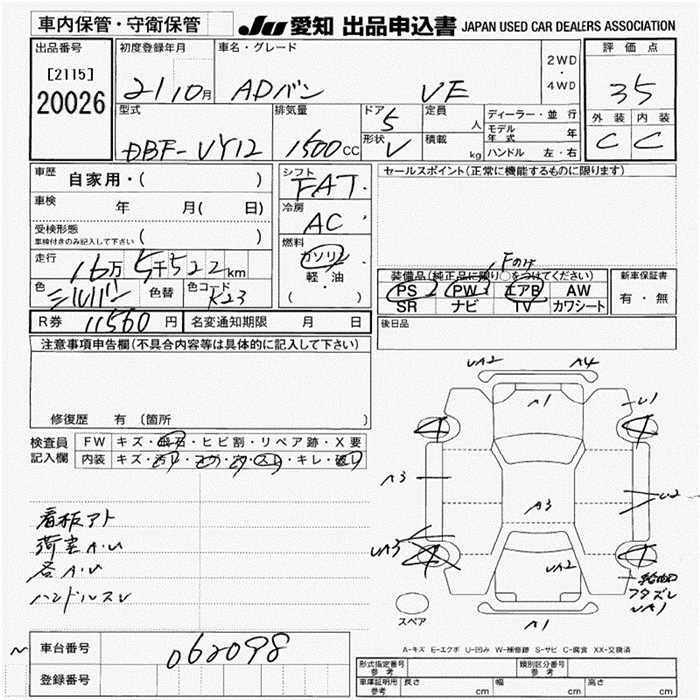 車内保管・守衛保管
JU 愛知 出品申込書 JAPAN USED CAR DEALERS ASSOCIATION
出品番号
[2115]
20026
初度登録年月
21 10月
車名・グレード
ADバン VE
2WD
・
4WD
評価点
35
外装 内装
C C
型式
DBF-VY12
排気量
1500cc
ドア
5
形状
V
定員
人
積載
kg
ディーラー・並行
モデル年式 年
ハンドル 左・右
車歴
自家用・( )
車検
年 月( 日)
受検形態
車検付きのみ記入して下さい ( )
走行
16万5千522km
色
シルバー
色替
色コード
K23
シフト
FAT
冷房
AC
燃料
ガソリン
軽・油
( )
セールスポイント(正常に機能するものに限ります)
装備品(純正品に限り○をつけてください)
PS PW エアB AW
SR ナビ TV カワシート
新車保証書
有・無
R券 11560円
名変通知期限 月 日
後日品
注意事項申告欄(不具合内容等は具体的に記入して下さい)
修復歴 有 (箇所 )
検査員
記入欄
FW キズ・飛石・ヒビ割・リペア跡・X要
内装 キズ・汚れ・コゲ・穴・スレ・キレ・破レ
看板アト
荷室A.U
各A.U
ハンドルスレ
UA2 A4
A1
U1
A3
A3
U2
UA3
UA2
UA1
A1
スペア
A-キズ E-エクボ U-凹み W-補修跡 S-サビ C-腐食 XX-交換済
車台番号
062098
登録番号
形式指定番号
参考
類別区分番号
参考
車庫証明用
参考
長さ cm 幅 cm 高さ cm